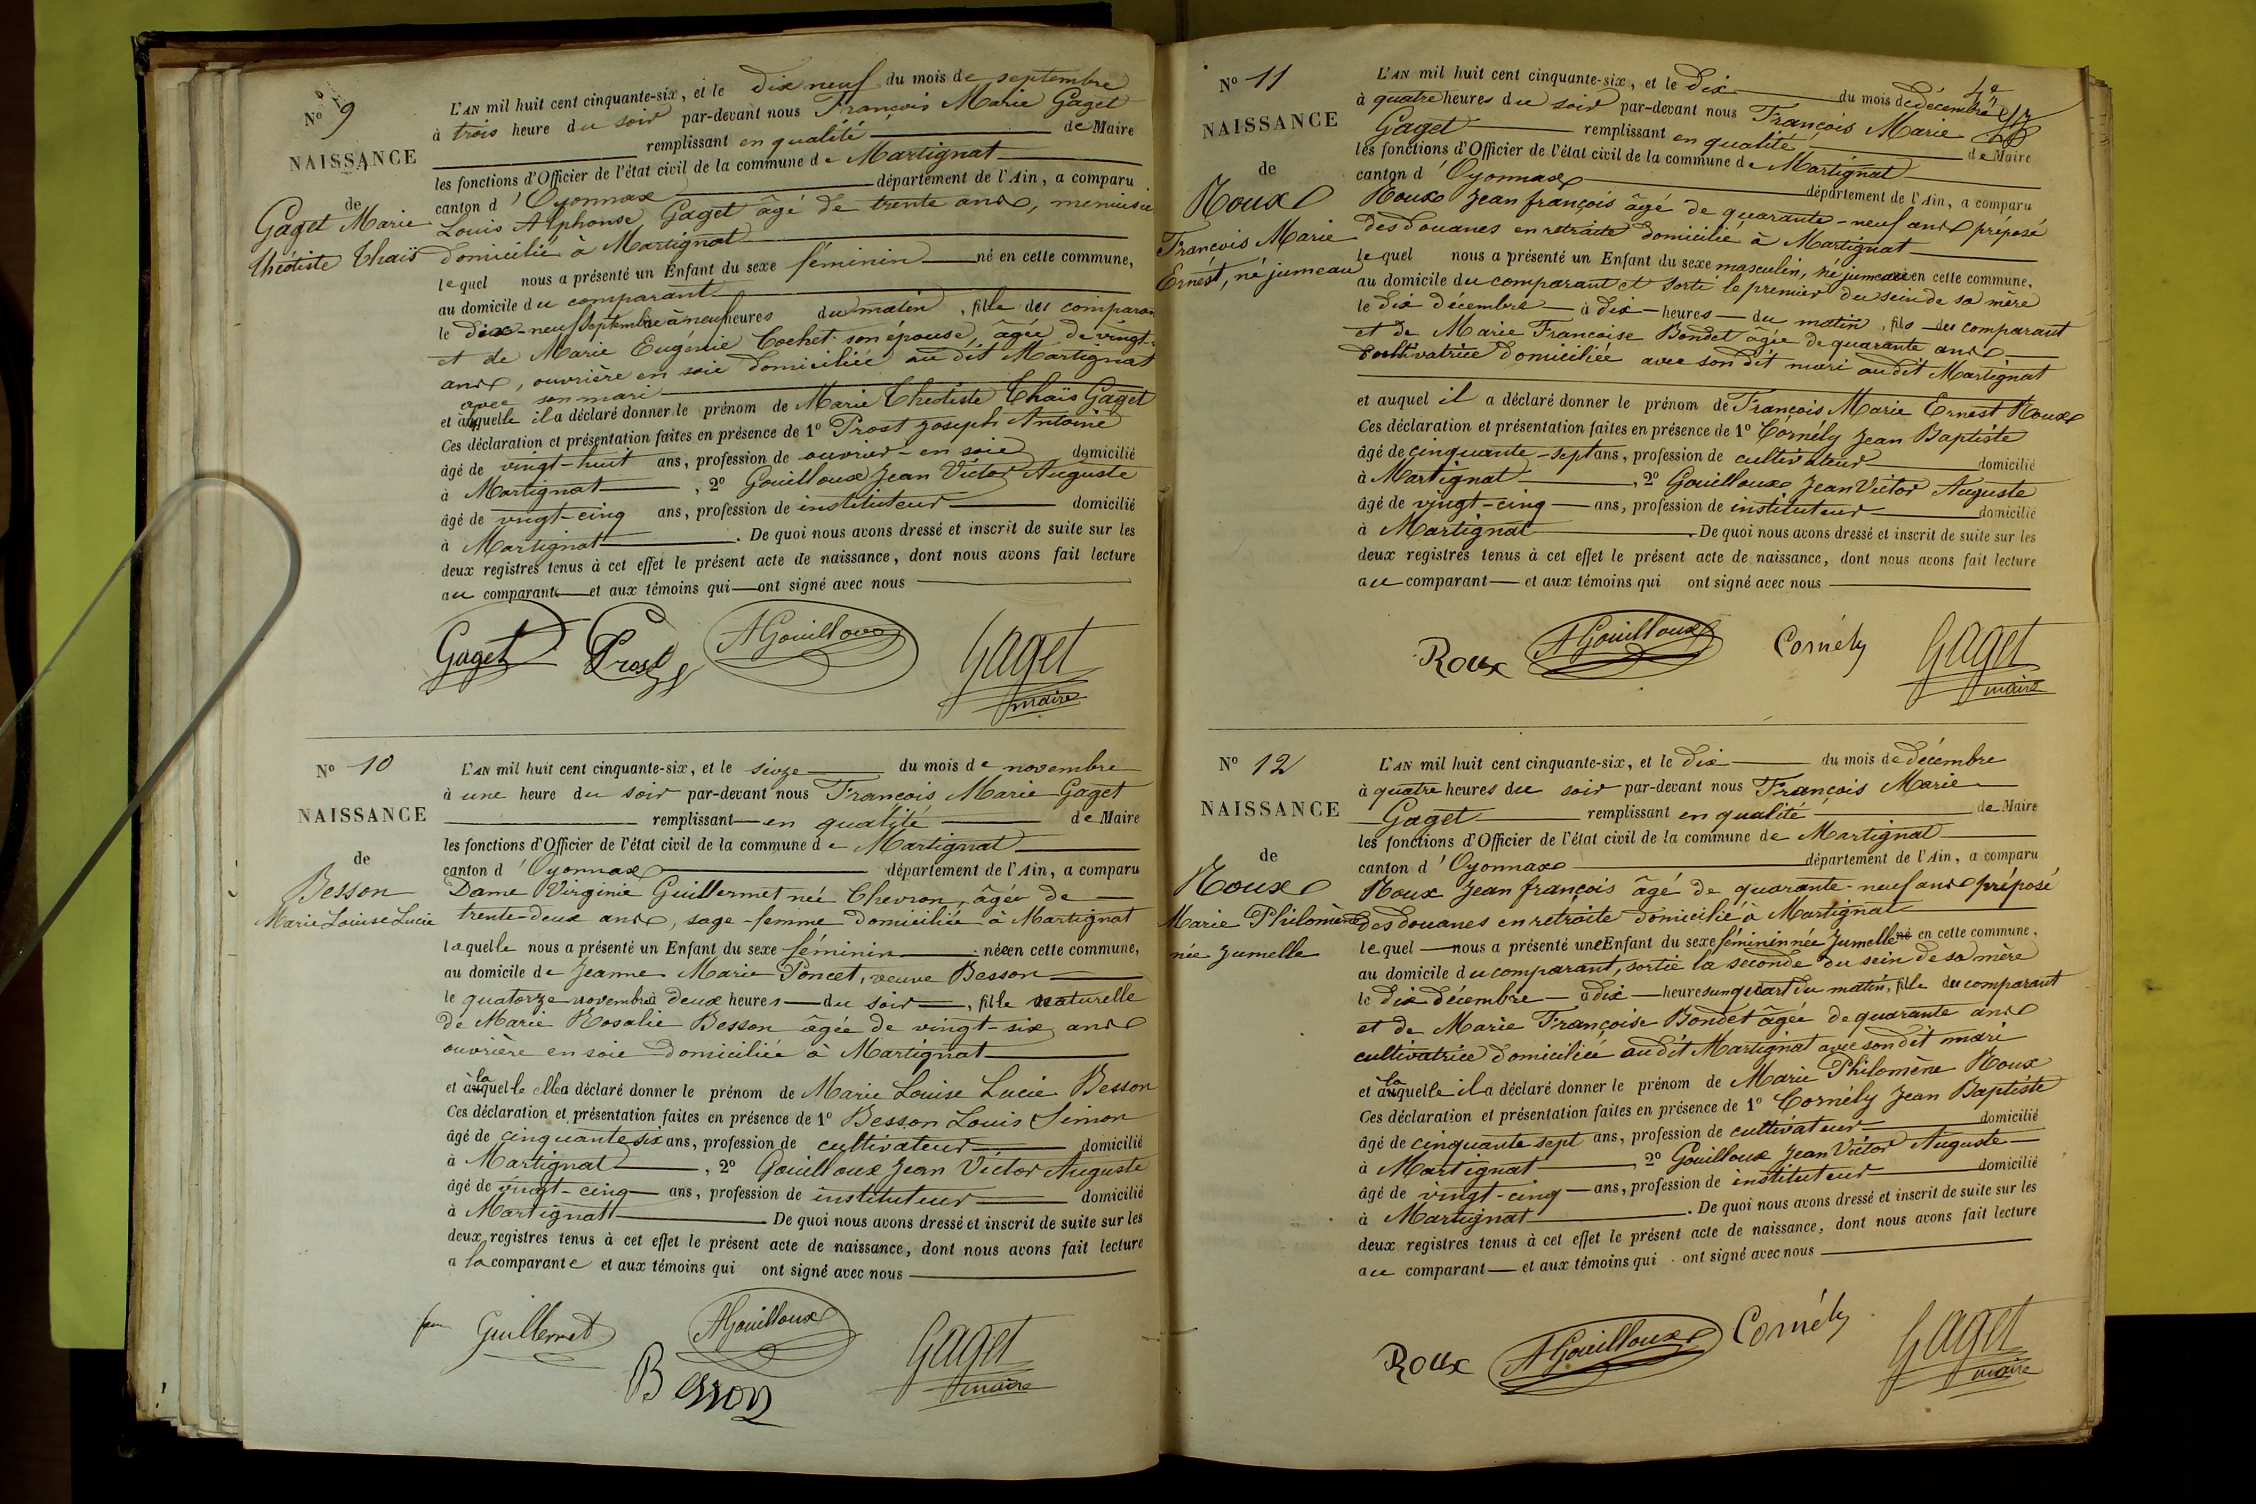 N° 9
NAISSANCE
de
Gaget Marie
théotiste Thaïs
L'AN mil huit cent cinquante-six, et le dix neuf du mois de septembre
à trois heure du soir par-devant nous François Marie Gaget
remplissant en qualité de Maire
les fonctions d'Officier de l'état civil de la commune de Martignat
canton d'Oyonnax département de l'Ain, a comparu
Louis Alphonse Gaget âgé de trente ans, menuisie
domicilié à Martignat
lequel nous a présenté un Enfant du sexe féminin né en cette commune,
au domicile du comparant
le dix-neuf septembre à neuf heures du matin, fille des comparan
et de Marie Eugénie Cochet son épouse, âgée de vingt-
ans, ouvrière en soie domiciliée au dit Martignat
avec son mari
et àquelle il a déclaré donner le prénom de Marie Théotiste Thaïs Gaget
Ces déclaration et présentation faites en présence de 1° Prost Joseph Antoine
âgé de vingt-huit ans, profession de ouvrier-en soie domicilié
à Martignat, 2° Gouilloux Jean Victor Auguste
âgé de vingt-cinq ans, profession de instituteur domicilié
à Martignat. De quoi nous avons dressé et inscrit de suite sur les
deux registres tenus à cet effet le présent acte de naissance, dont nous avons fait lecture
au comparant et aux témoins qui ont signé avec nous
Gaget Prost AGouilloux Gaget
maire
N° 10
NAISSANCE
de
Besson
Marie Louise Lucie
L'AN mil huit cent cinquante-six, et le sieze du mois de novembre
à une heure du soir par-devant nous François Marie Gaget
remplissant en qualité de Maire
les fonctions d'Officier de l'état civil de la commune de Martignat
canton d'Oyonnax département de l'Ain, a comparu
Dame Virginie Guillermet née Chevron, âgée de
trente-deux ans, sage-femme domiciliée à Martignat
laquelle nous a présenté un Enfant du sexe féminin née en cette commune,
au domicile de Jeanne Marie Poncet, veuve Besson
le quatorze novembre à deux heures du soir, fille naturelle
de Marie Rosalie Besson âgée de vingt-six ans
ouvrière en soie domiciliée à Martignat
et à laquelle elle a déclaré donner le prénom de Marie Louise Lucie Besson
Ces déclaration et présentation faites en présence de 1° Besson Louis Simon
âgé de cinquante six ans, profession de cultivateur domicilié
à Martignat, 2° Gouilloux Jean Victor Auguste
âgé de vingt-cinq ans, profession de instituteur domicilié
à Martignat. De quoi nous avons dressé et inscrit de suite sur les
deux registres tenus à cet effet le présent acte de naissance, dont nous avons fait lecture
a la comparante et aux témoins qui ont signé avec nous
fem Guillermet AGouilloux Gaget
Besson maire
4e
N° 11
NAISSANCE
de
Roux
François Marie
Ernest, né jumeau
L'AN mil huit cent cinquante-six, et le dix du mois de décembre
à quatre heures du soir par-devant nous François Marie
Gaget remplissant en qualité de Maire
les fonctions d'Officier de l'état civil de la commune de Martignat
canton d'Oyonnax département de l'Ain, a comparu
Roux Jean françois âgé de quarante-neuf ans préposé
des douanes en retraite domicilié à Martignat
lequel nous a présenté un Enfant du sexe masculin, né jumeau en cette commune,
au domicile du comparant et sorti le premier du sein de sa mère
le dix décembre à dix heures du matin, fils du comparant
et de Marie Françoise Bondet âgée de quarante ans
cultivatrice domiciliée avec son dit mari au dit Martignat
et auquel il a déclaré donner le prénom de François Marie Ernest Roux
Ces déclaration et présentation faites en présence de 1° Cornély Jean Baptiste
âgé de cinquante-sept ans, profession de cultivateur domicilié
à Martignat, 2° Gouilloux Jean Victor Auguste
âgé de vingt-cinq ans, profession de instituteur domicilié
à Martignat. De quoi nous avons dressé et inscrit de suite sur les
deux registres tenus à cet effet le présent acte de naissance, dont nous avons fait lecture
au comparant et aux témoins qui ont signé avec nous
Roux AGouilloux Cornély Gaget
maire
N° 12
NAISSANCE
de
Roux
Marie Philomène
née jumelle
L'AN mil huit cent cinquante-six, et le dix du mois de décembre
à quatre heures du soir par-devant nous François Marie
Gaget remplissant en qualité de Maire
les fonctions d'Officier de l'état civil de la commune de Martignat
canton d'Oyonnax département de l'Ain, a comparu
Roux Jean françois âgé de quarante-neuf ans préposé
des douanes en retraite domicilié à Martignat
lequel nous a présenté une Enfant du sexe féminin née jumelle né en cette commune,
au domicile du comparant, sortie la seconde du sein de sa mère
le dix décembre à dix heures un quart du matin, fille du comparant
et de Marie Françoise Bondet âgée de quarante ans
cultivatrice domiciliée au dit Martignat avec son dit mari
et à laquelle il a déclaré donner le prénom de Marie Philomène Roux
Ces déclaration et présentation faites en présence de 1° Cornély Jean Baptiste
âgé de cinquante sept ans, profession de cultivateur domicilié
à Martignat 2° Gouilloux Jean Victor Auguste
âgé de vingt-cinq ans, profession de instituteur domicilié
à Martignat. De quoi nous avons dressé et inscrit de suite sur les
deux registres tenus à cet effet le présent acte de naissance, dont nous avons fait lecture
au comparant et aux témoins qui ont signé avec nous
Roux AGouilloux Cornély Gaget
maire